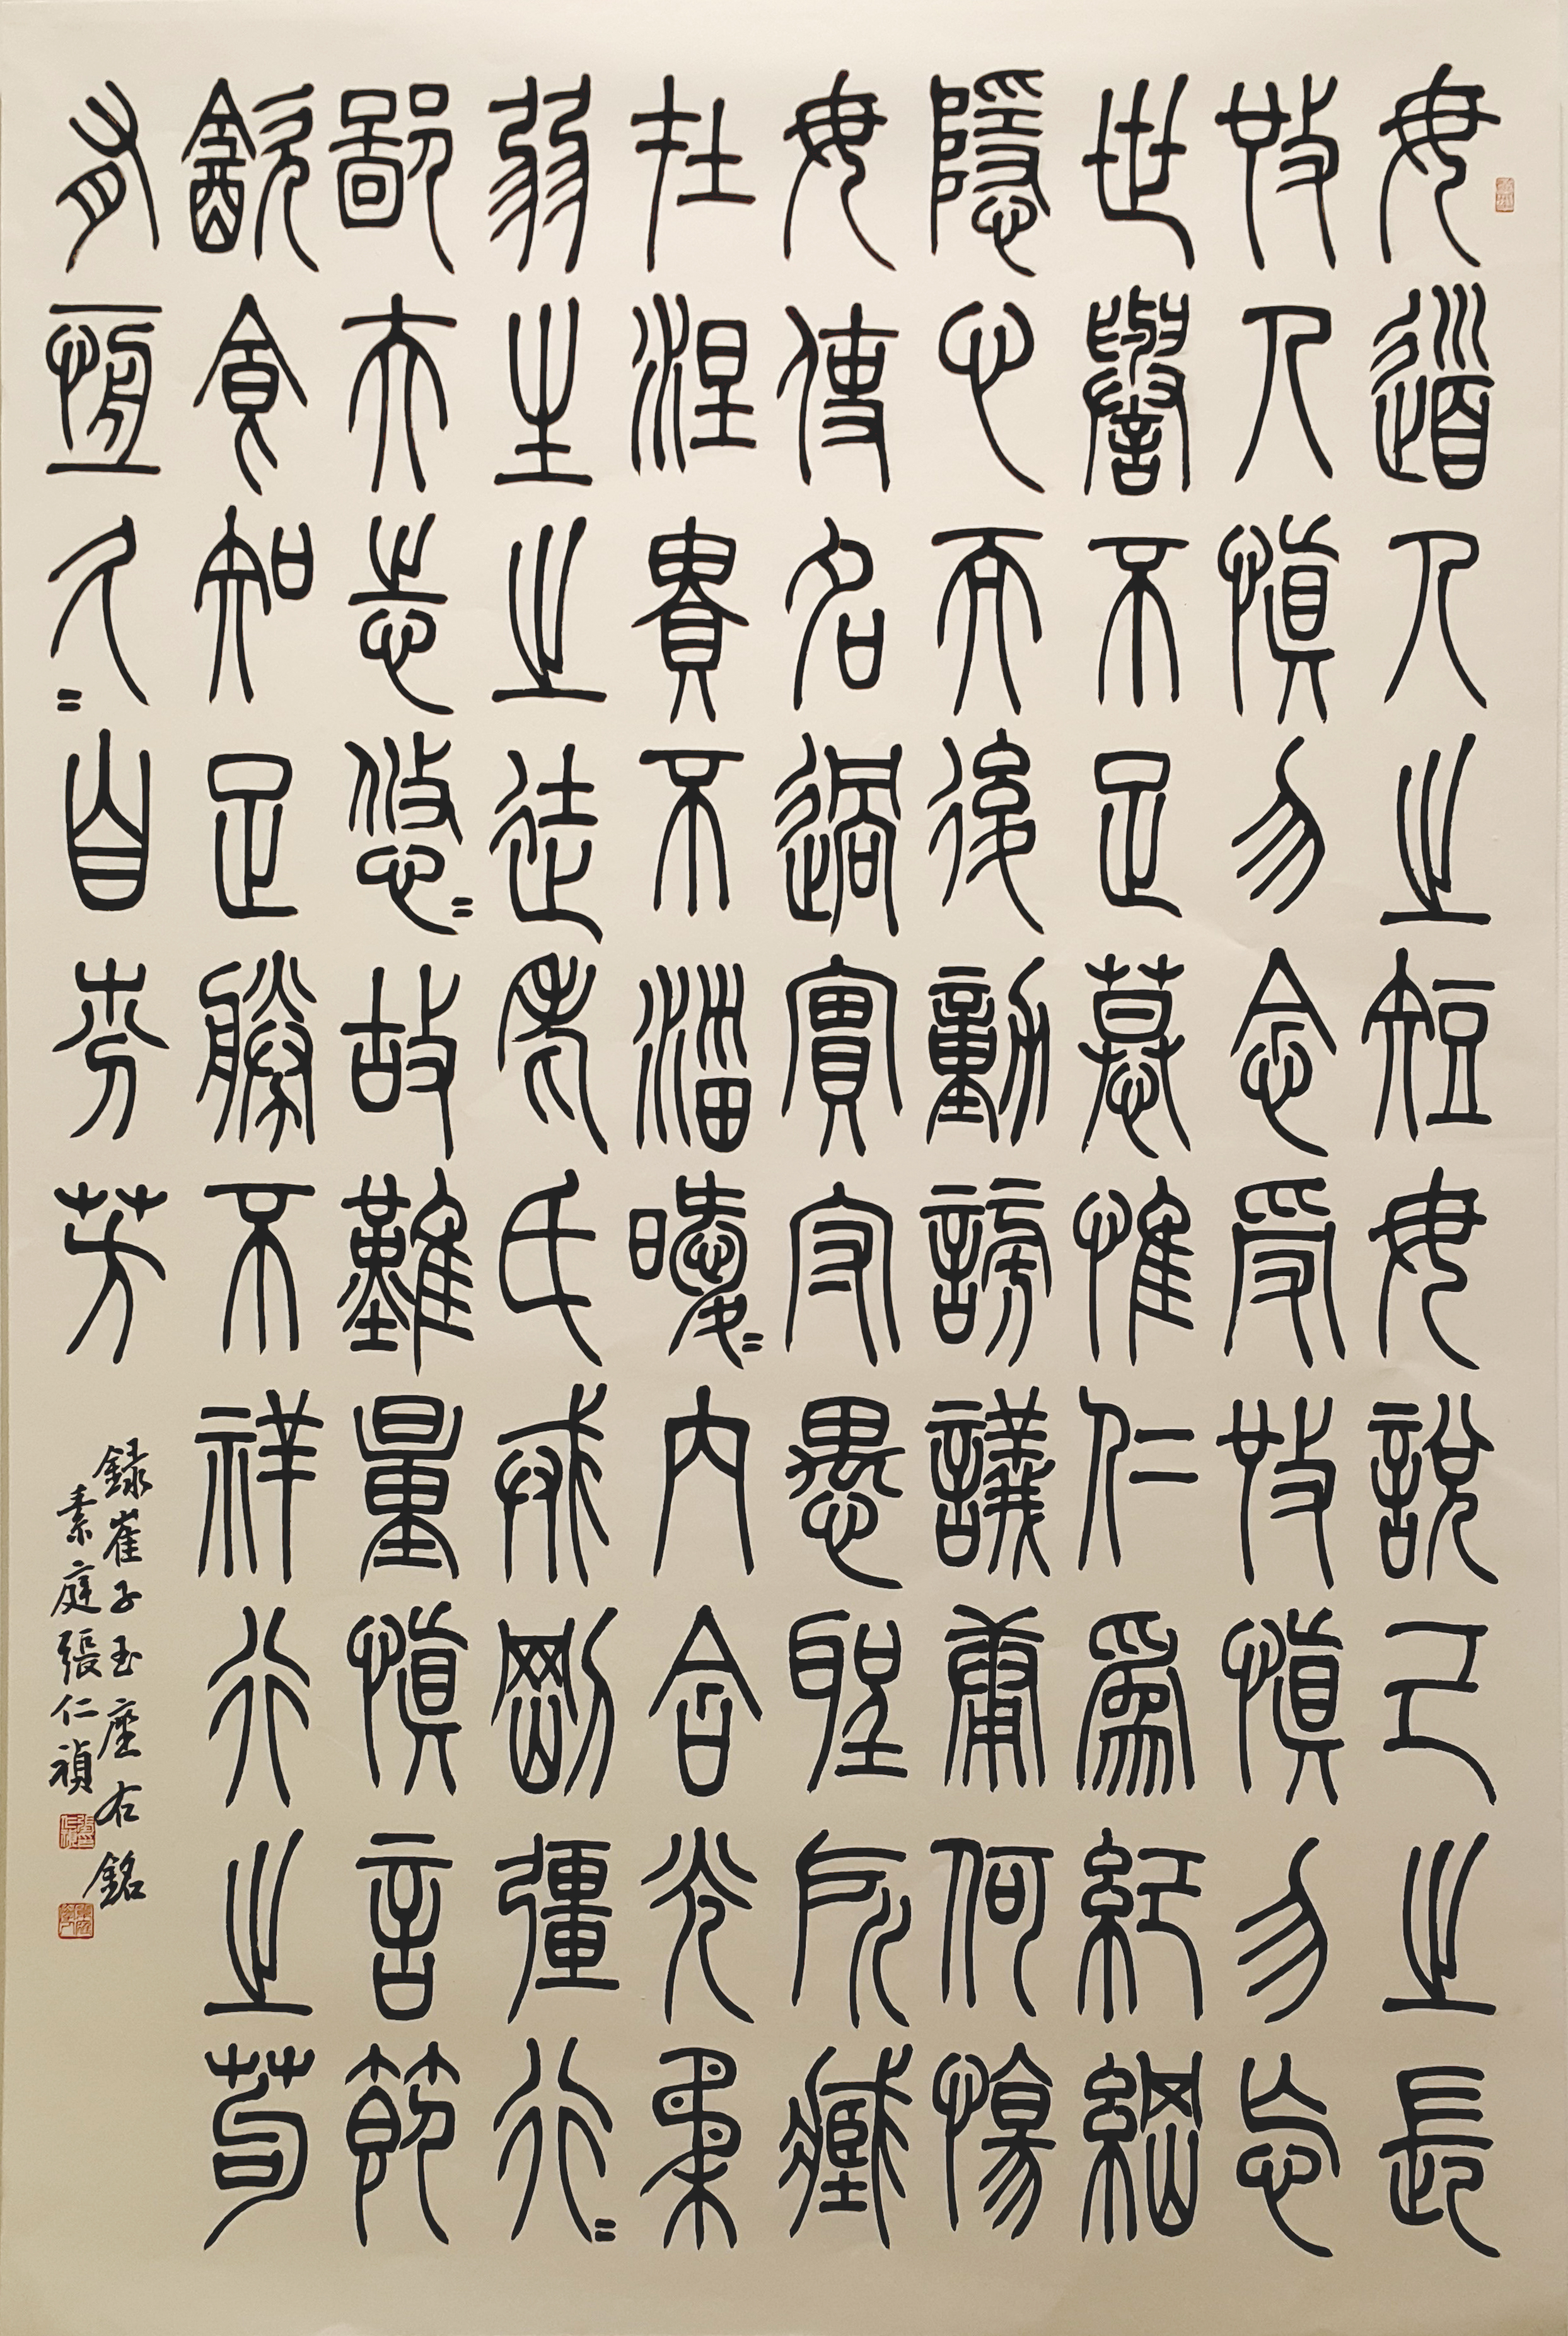 毋道人之短毋說己之長
施人慎勿念受施慎勿忘
世譽不足慕惟仁為紀綱
隱心而後動謗議庸何傷
毋使名過實守愚聖所臧
在涅貴不淄曖〻內含光柔
弱生之徒老氏戒剛彊行〻
鄙夫志悠〻故難量慎言節
飲食知足勝不祥行之苟
有恆久〻自芬芳
錄崔子玉座右銘
素庭張仁禎